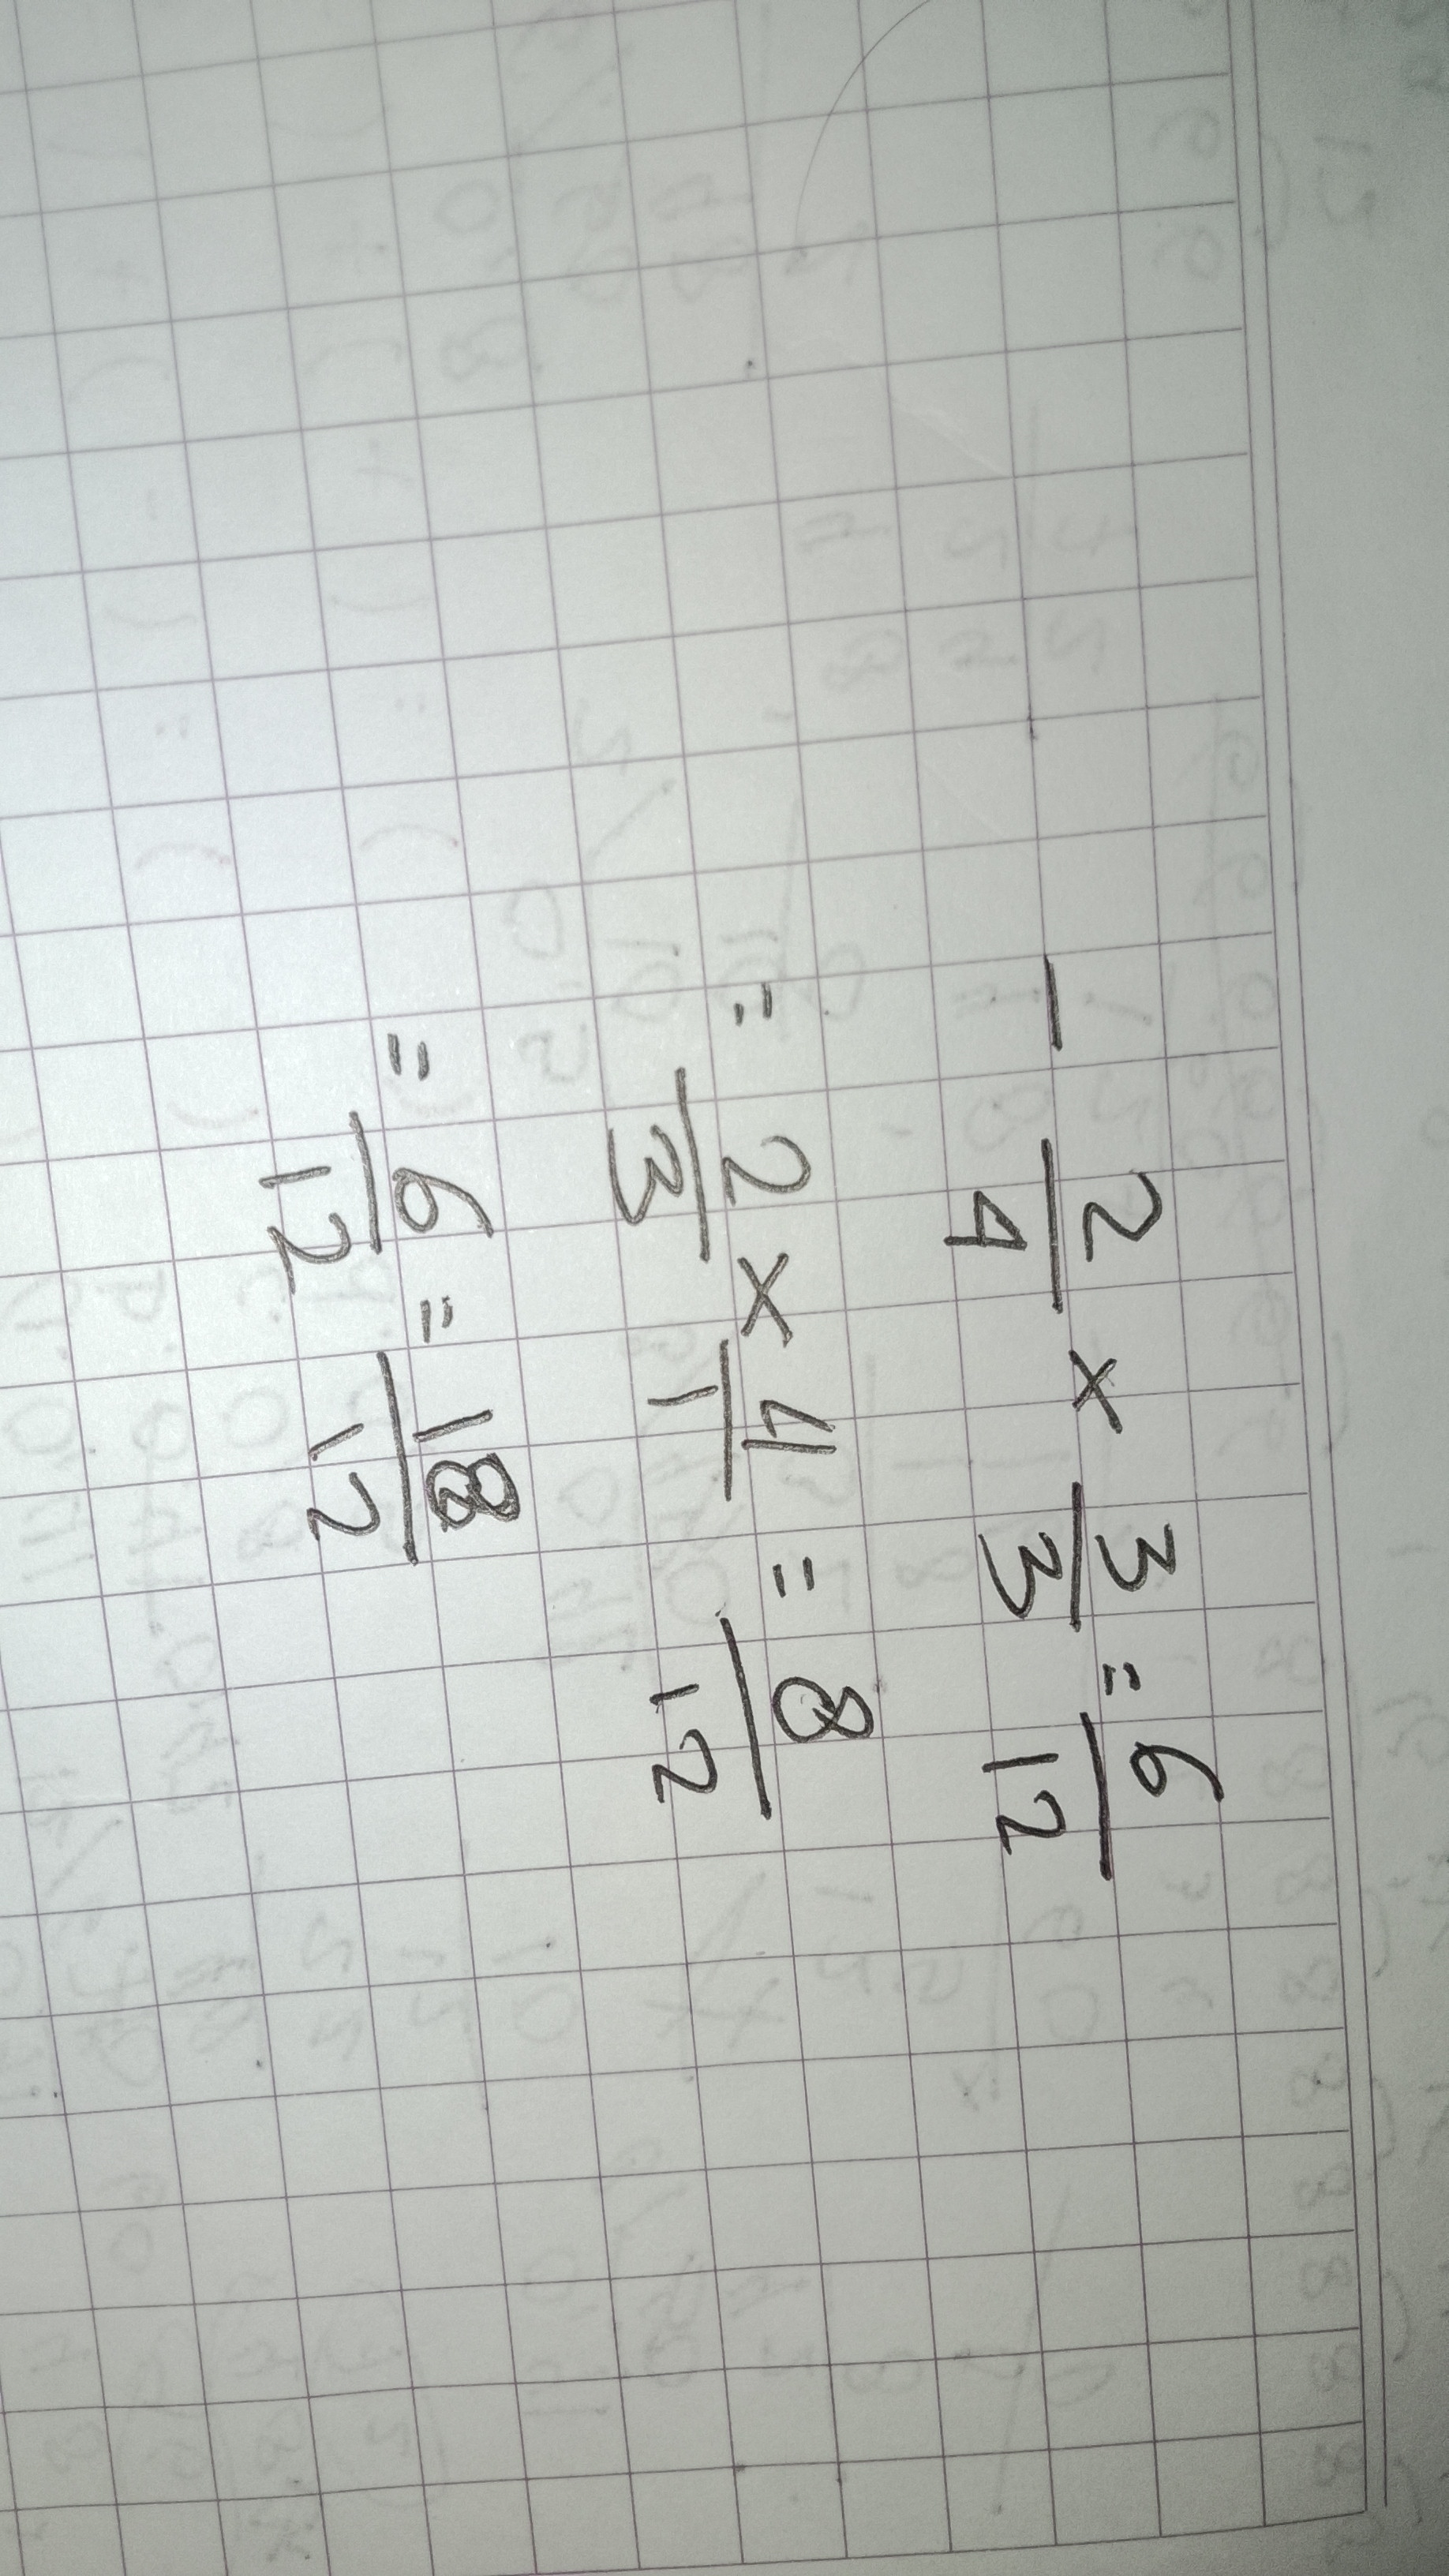 - 2/4 × 3/3 = 6/12
= 2/3 × 4/1 = 8/12
= 6/12 = 18/12